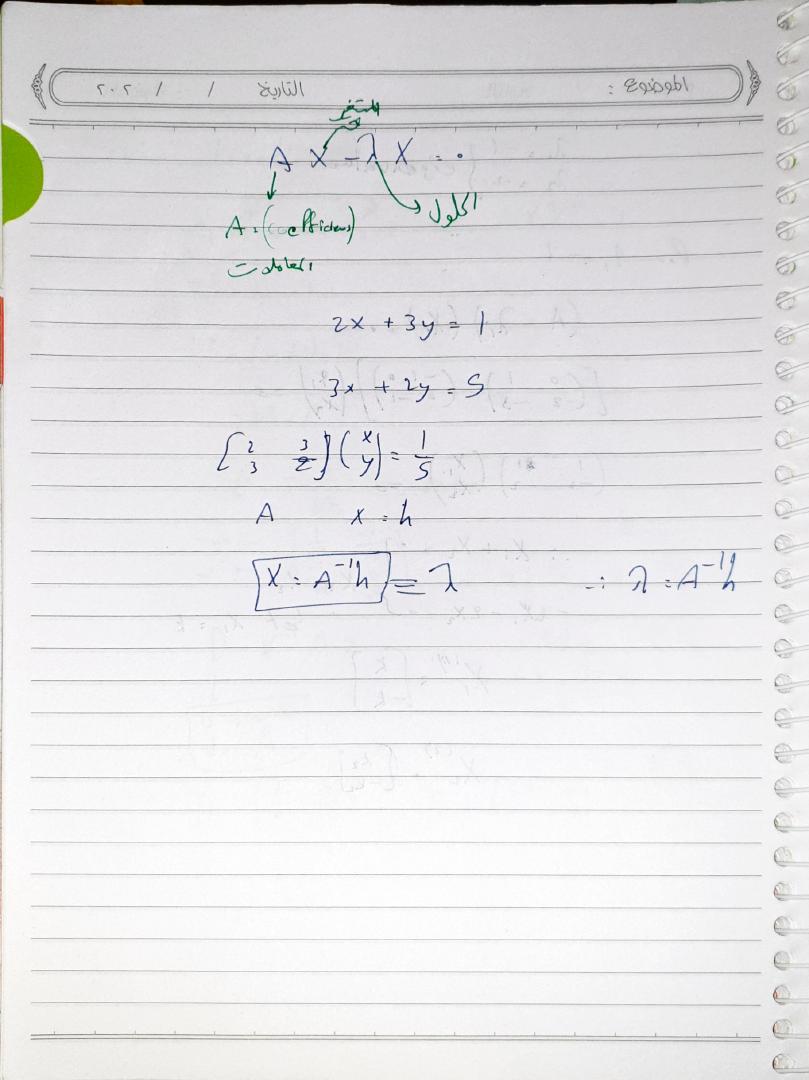 الموضوع : التاريخ / / ٢٠٢
المتغير
A X - λ X = ٠
الحلول
A = (coefficients)
المعاملات
2x + 3y = 1
3x + 2y = 5
[2 3
3 2] (x
y) = 1
5
A x = h
X = A⁻¹h = λ ∴ λ = A⁻¹h